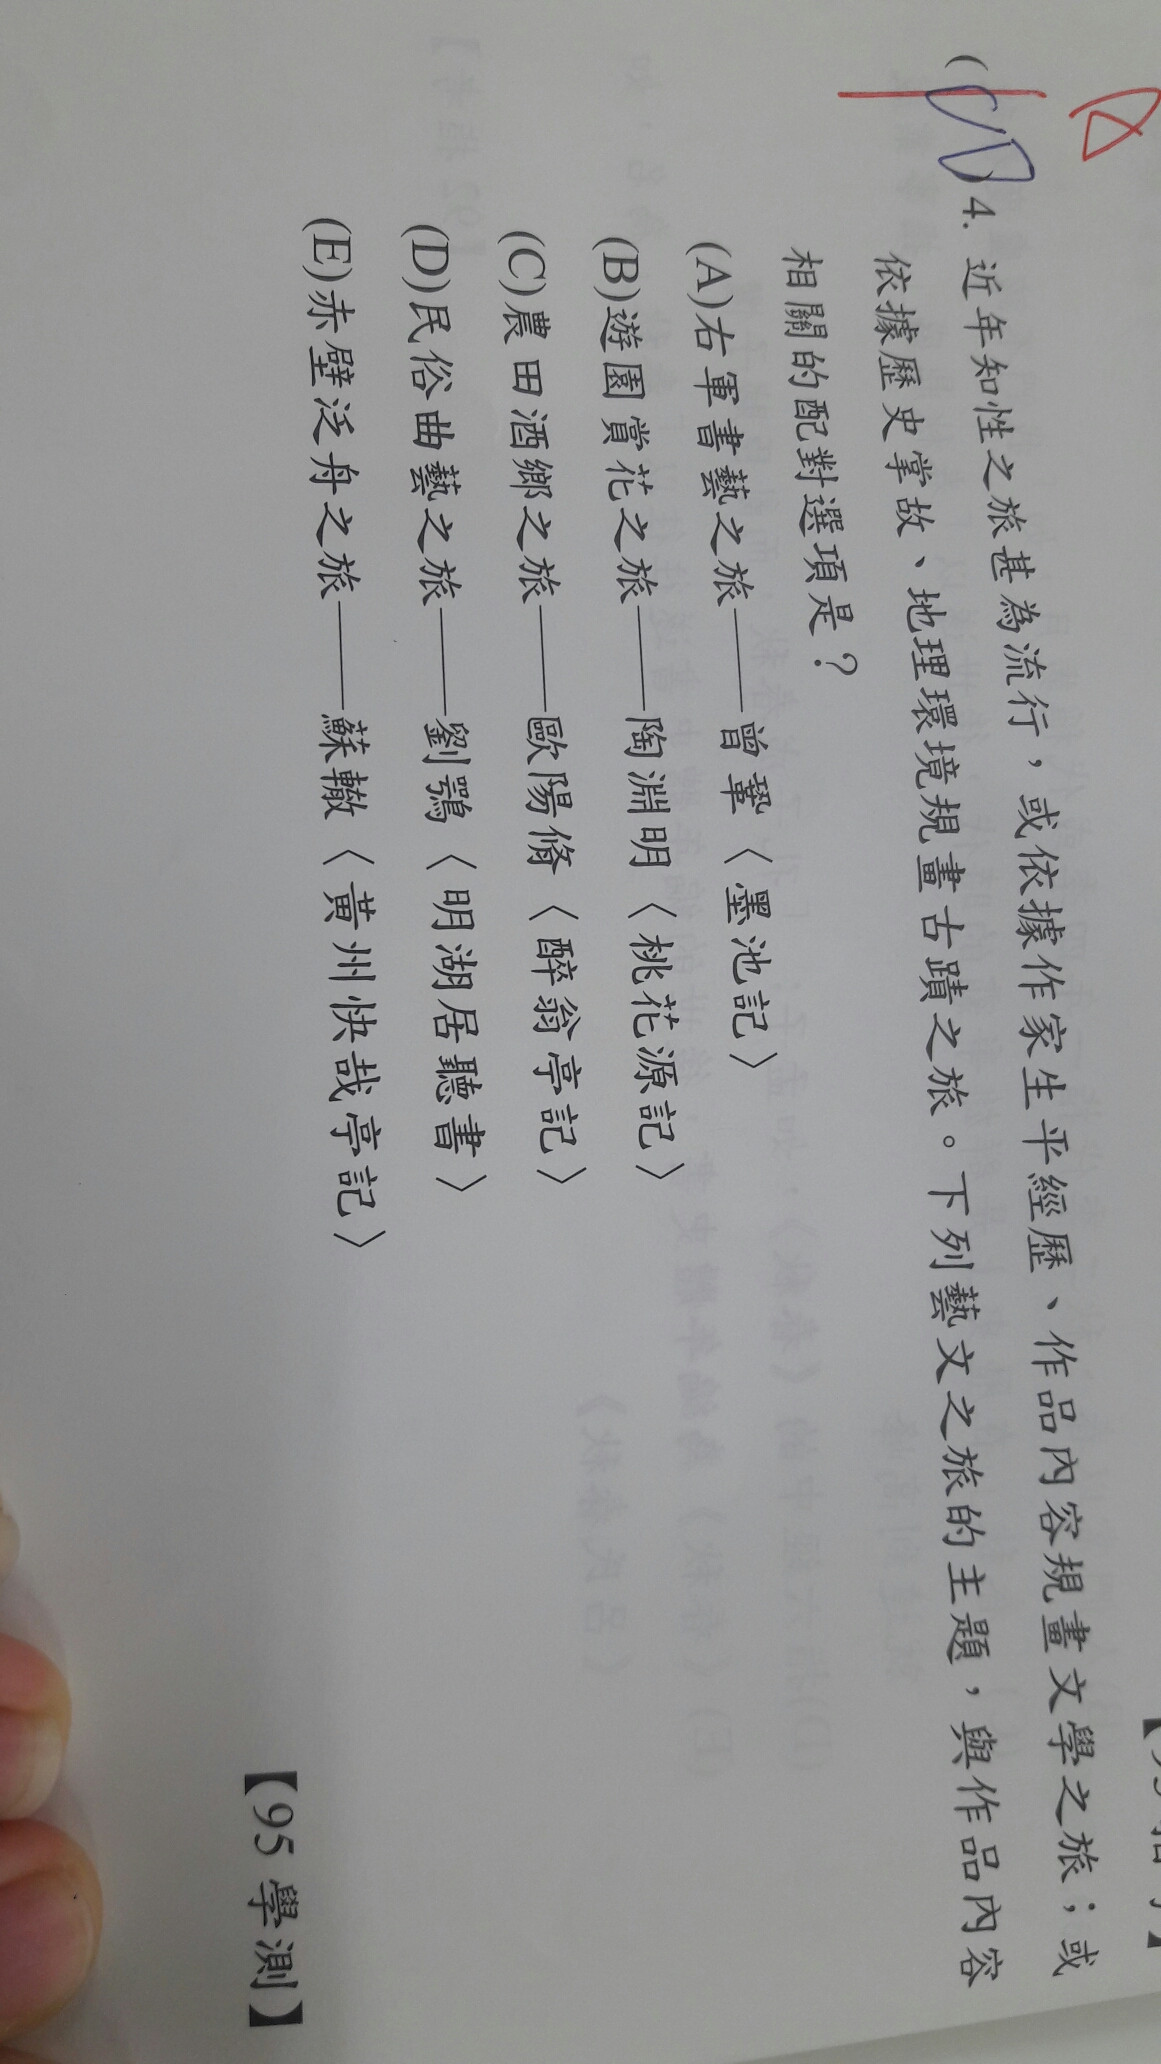 (CD)4. 近年知性之旅甚為流行，或依據作家生平經歷、作品內容規畫文學之旅；或
依據歷史掌故、地理環境規畫古蹟之旅。下列藝文之旅的主題，與作品內容
相關的配對選項是？
(A)右軍書藝之旅——曾鞏〈墨池記〉
(B)遊園賞花之旅——陶淵明〈桃花源記〉
(C)農田酒鄉之旅——歐陽脩〈醉翁亭記〉
(D)民俗曲藝之旅——劉鶚〈明湖居聽書〉
(E)赤壁泛舟之旅——蘇轍〈黃州快哉亭記〉
【95 學測】